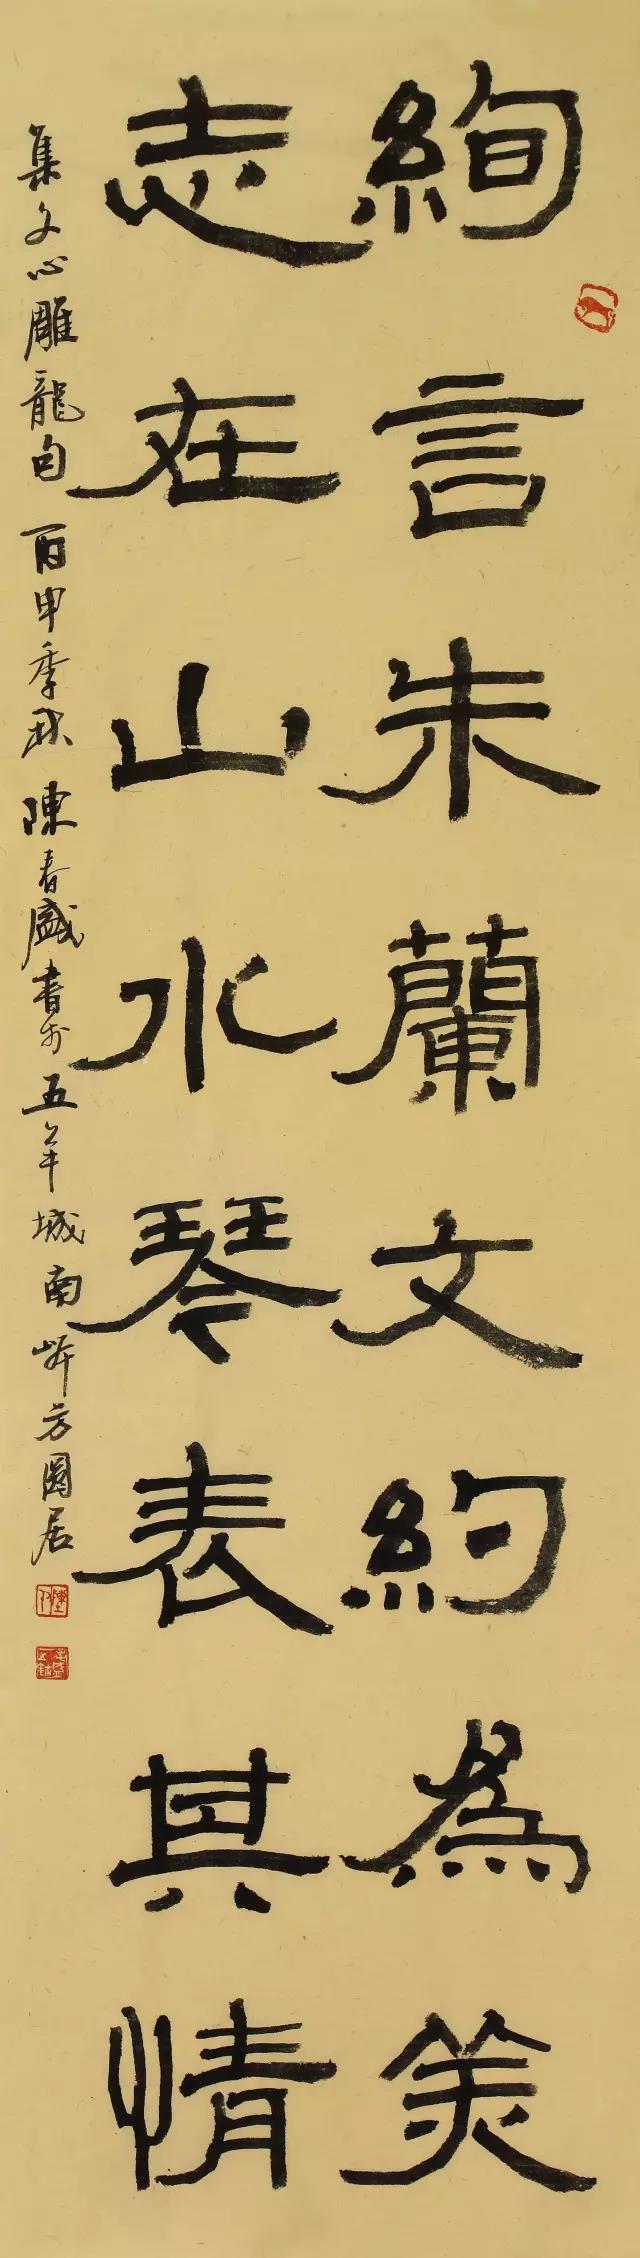 絢言朱蘭文約為美
志在山水琴表其情
集文心雕龍句 丙申季秋 陳春盛書於五羊城南岸方圓居